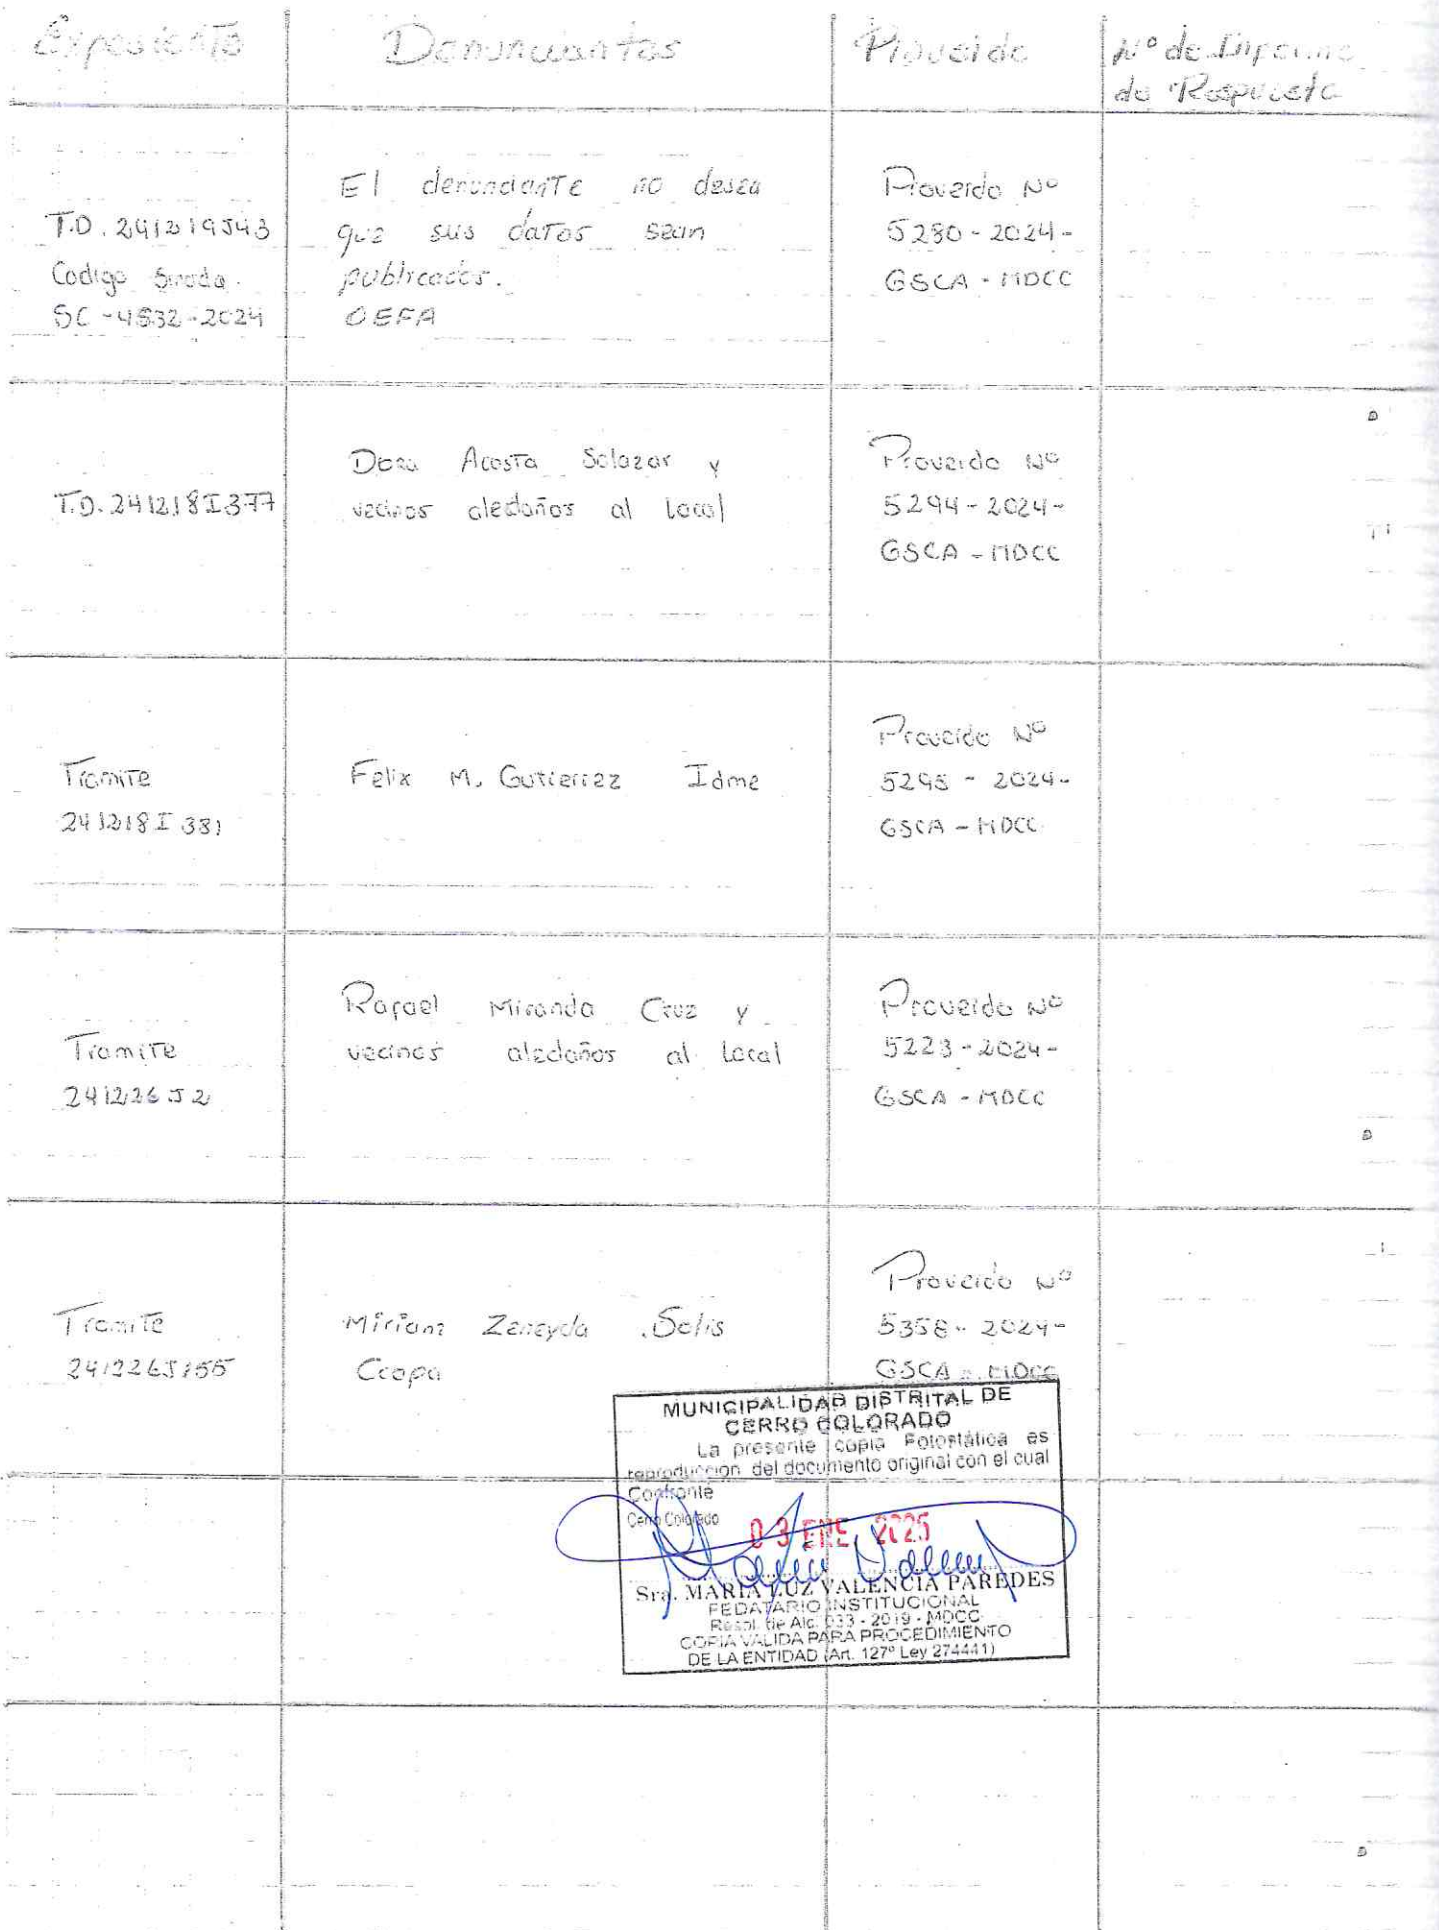 Expediente
Denunciantes
Proveido
N° de Informe
de Respuesta
T.D. 241219543
Codigo Sinada.
SC-4832-2024
El denunciante no desea
que sus datos sean
publicados.
OEFA
Proveido N°
5280-2024-
GSCA-MDCC
T.D. 241218I377
Dora Acosta Salazar y
vecinos aledaños al local
Proveido N°
5294-2024-
GSCA-MDCC
Tramite
241218I381
Felix M. Gutierrez Idme
Proveido N°
5295-2024-
GSCA-MDCC
Tramite
241226J2
Rafael Miranda Cruz y
vecinos aledaños al local
Proveido N°
5223-2024-
GSCA-MDCC
Tramite
241226J155
Miriam Zeneyda Solis
Ccopa
Proveido N°
5358-2024-
GSCA-MDCC
MUNICIPALIDAD DISTRITAL DE
CERRO COLORADO
La presente copia Fotostática es
reproducción del documento original con el cual
Confronte
Cerro Colorado
03 ENE. 2025
Sra. MARIA LUZ VALENCIA PAREDES
FEDATARIO INSTITUCIONAL
Resol. de Alc. 033 - 2019 - MDCC
COPIA VALIDA PARA PROCEDIMIENTO
DE LA ENTIDAD (Art. 127° Ley 274441)